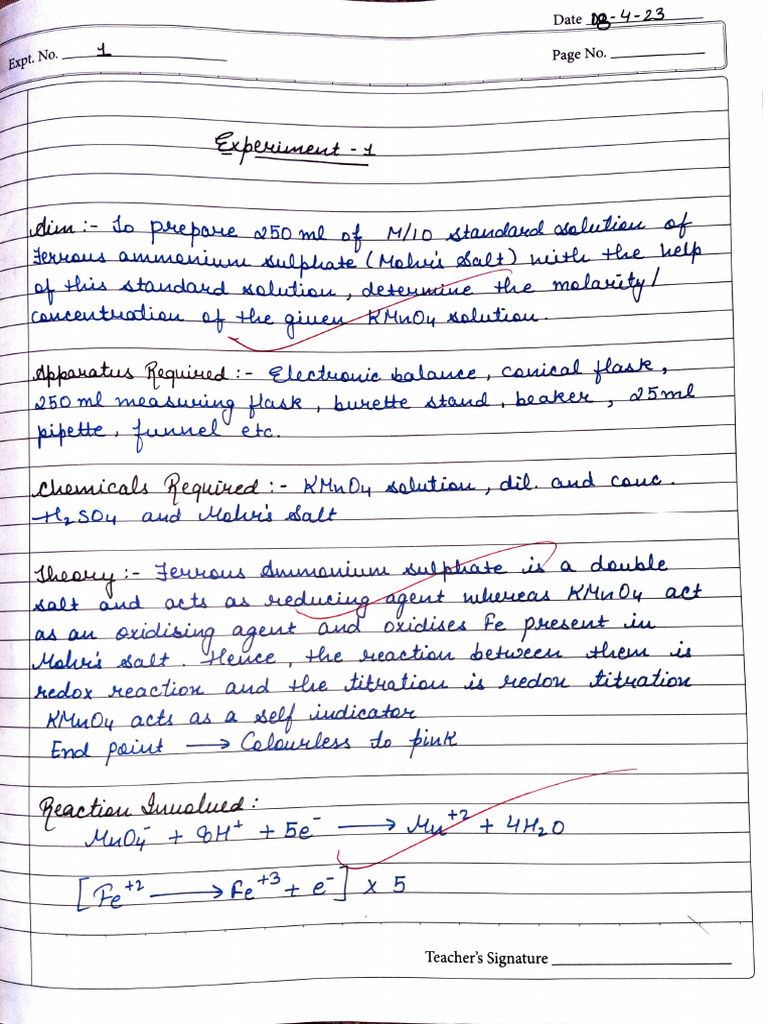 Date 03-4-23
Expt. No. 1
Page No.
Experiment - 1
Aim :- To prepare 250 ml of M/10 standard solution of
Ferrous ammonium sulphate (Mohr's Salt) with the help
of this standard solution, determine the molarity/
concentration of the given KMnO4 solution.
Apparatus Required :- Electronic balance, conical flask,
250 ml measuring flask, burette stand, beaker, 25ml
pipette, funnel etc.
Chemicals Required :- KMnO4 solution, dil. and conc.
H2SO4 and Mohr's Salt
Theory :- Ferrous Ammonium sulphate is a double
salt and acts as reducing agent whereas KMnO4 act
as an oxidising agent and oxidises Fe present in
Mohr's salt. Hence, the reaction between them is
redox reaction and the titration is redox titration
KMnO4 acts as a self indicator
End point → Colourless to pink
Reaction Involved :
MnO4⁻ + 8H⁺ + 5e⁻ → Mn⁺² + 4H2O
[Fe⁺² → Fe⁺³ + e⁻] x 5
Teacher's Signature